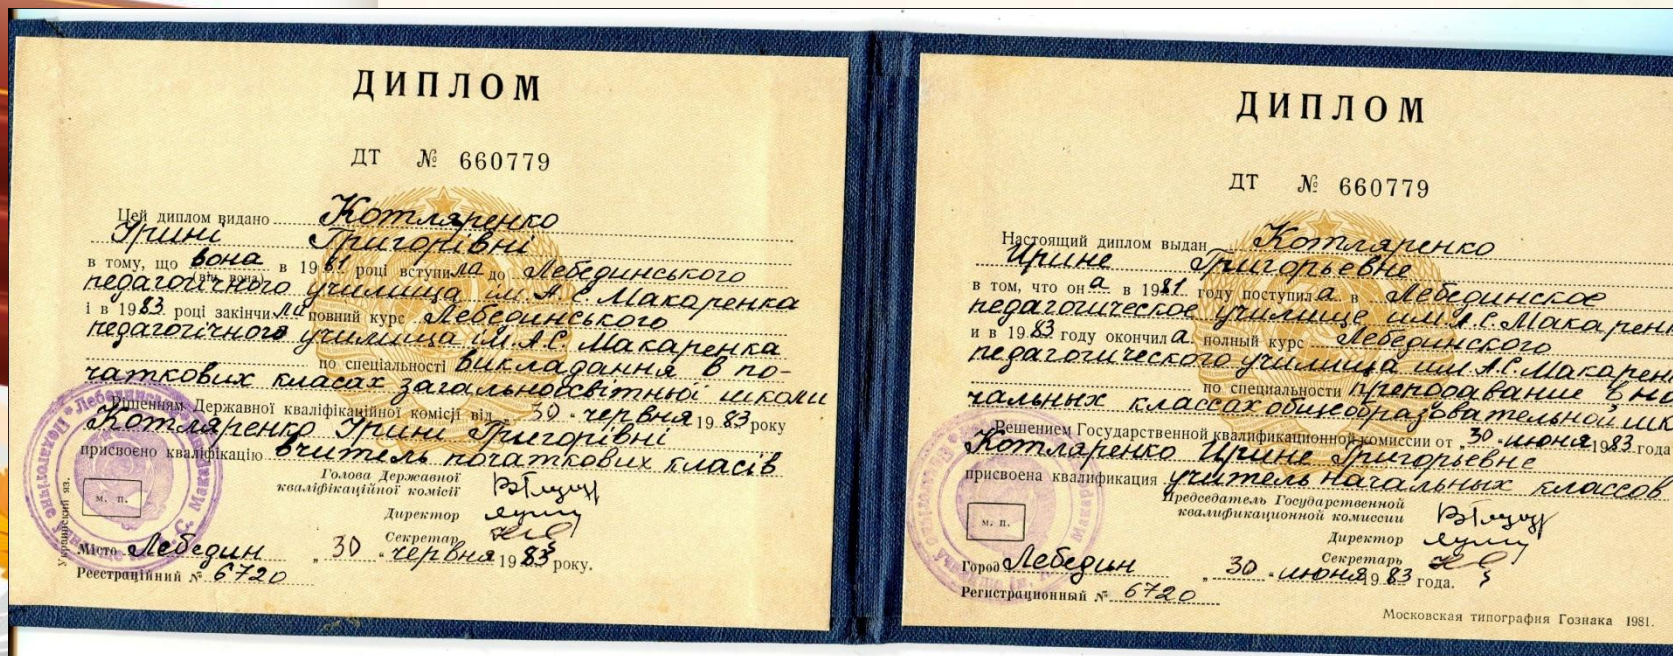 ДИПЛОМ
ДТ № 660779
Цей диплом видано Котляренко
Ірині Григорівні
в тому, що вона в 1981 році вступила до Лебединського
(він, вона)
педагогічного училища ім. А.С. Макаренка
і в 1983 році закінчила повний курс Лебединського
педагогічного училища ім. А.С. Макаренка
по спеціальності викладання в по-
чаткових класах загальноосвітньої школи
Рішенням Державної кваліфікаційної комісії від 30 червня 1983 року
Котляренко Ірині Григорівні
присвоєно кваліфікацію вчитель початкових класів
Голова Державної
кваліфікаційної комісії
м. п.
Директор
Секретар
Місто Лебедин „ 30 " червня 1983 року.
Реєстраційний № 6720
Украинский яз.
ДИПЛОМ
ДТ № 660779
Настоящий диплом выдан Котляренко
Ирине Григорьевне
в том, что она в 1981 году поступила в Лебединское
педагогическое училище им. А.С. Макаренк
и в 1983 году окончила полный курс Лебединского
педагогического училища им. А.С. Макарен
по специальности преподавание в на
чальных классах общеобразовательной шк
Решением Государственной квалификационной комиссии от 30 июня 1983 года
Котляренко Ирине Григорьевне
присвоена квалификация учитель начальных классов
Председатель Государственной
квалификационной комиссии
м. п.
Директор
Секретарь
Город Лебедин „ 30 " июня 1983 года.
Регистрационный № 6720
Московская типография Гознака 1981.